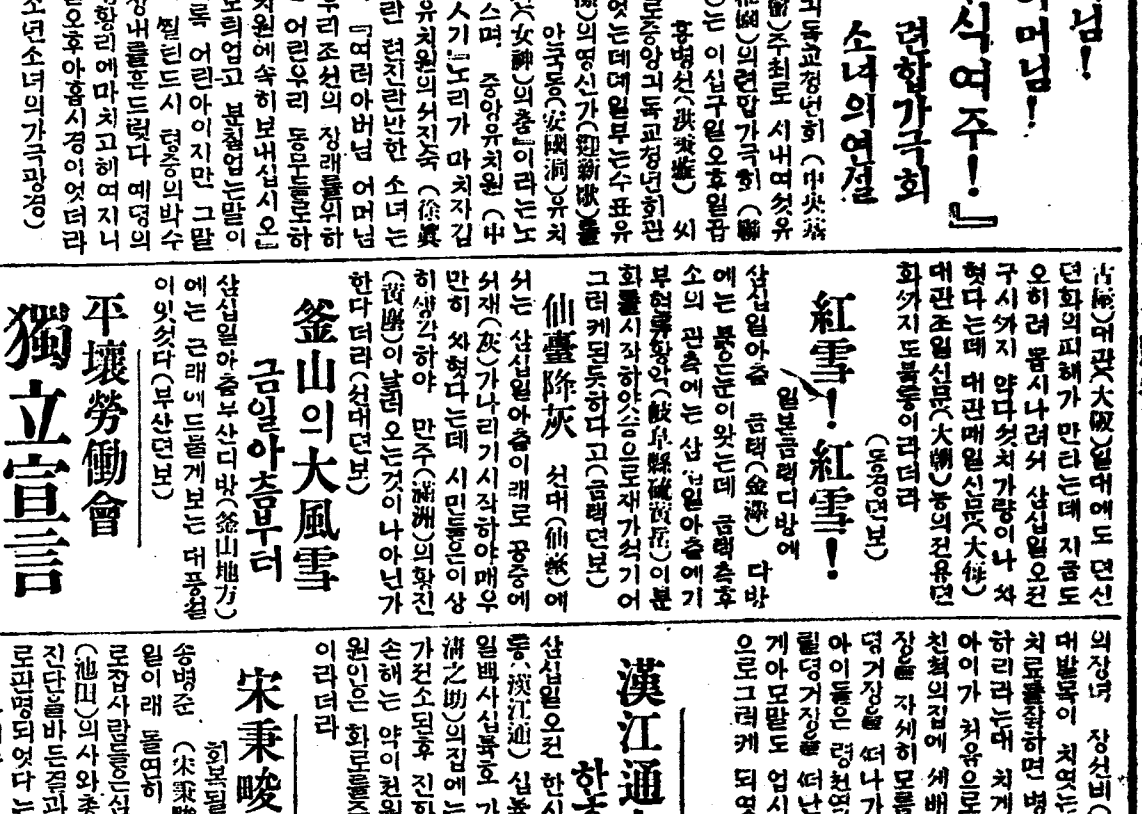 님!
어머님!
식여주!』
련합가극회
소녀의연설
긔독교청년회(中央基
주최로 시내여섯유
의련합가극회(聯
는 이십구일오후일곱
로중앙긔독교청년회관
엇는데데일부는수표유
의영신가(迎新歌)를
안국동(安國洞)유치
(女神)의춤』이라는노
스며 중앙유치원(中
인기『노리가 마치자김
유치원의서진숙(徐眞
란 련진란만한 소녀는
『여러아버님 어머님
우리조선의 장래를위하
어린우리 동무들로하
치원에속히보내십시오』
도희업고 분칠업는말이
록 어린아이지만 그말
찔린드시 텽중의박수
장내를흔드럿다 예뎡의
황리에마치고헤여지니
오후아홉시경이엇더라
소년소녀의가극광경)
대관(大阪)일대에도 뎐신
뎐화의피해가 만타는데 지금도
오히려 몹시나려서 삼십일오전
구시까지 약다섯치가량이나 싸
혓다는데 대관매일신문(大每)
대관조일신문(大朝)등의전용뎐
화까지도불통이라더라
(동경뎐보)
紅雪! 紅雪!
일본금택디방에
삼십일아츰 금택(金澤) 디방
에는 붉은눈이왓는데 금택측후
소의 관측에는 삼십일아츰에기
부현류황악(岐阜縣硫黃岳)이분
화를시작하얏슴으로재가석기어
그러케된듯하다고(금택뎐보)
仙臺降灰
선대(仙臺)에
서는 삼십일아츰이래로 공중에
서재(灰)가나리기시작하야매우
만히 싸혓다는데 시민들은이상
히생각하야 만주(滿洲)의황진
(黃塵)이날러오는것이나아닌가
한다더라(선대뎐보)
釜山의大風雪
금일아츰부터
삼십일아츰부산디방(釜山地方)
에는 근래에드물게보는 대풍설
이잇섯다(부산뎐보)
平壤勞働會
獨立宣言
의장녀 장선비(
대발목이 치엿는
치료를잘하면 병
하리라는대 치계
아이가 처음으로
친척의집에 세배
장을 자세히모름
뎡거장을 떠나가
아이들은 령천역
릴뎡거장을 떠난
게아모말도 업시
으로그러케 되엿
漢江通
삼십일오전 한시
통(漢江通) 십륙
일백사십륙호 가
淸之助)의집에는
가전소된후 진화
손해는 약이천원
원인은 화로를주
이라더라
宋秉畯
회복될
송병준 (宋秉畯
일이래 돌연히
로잡사람들은심
(池田)의사와총
진단을바든결과
로판명되엿다는